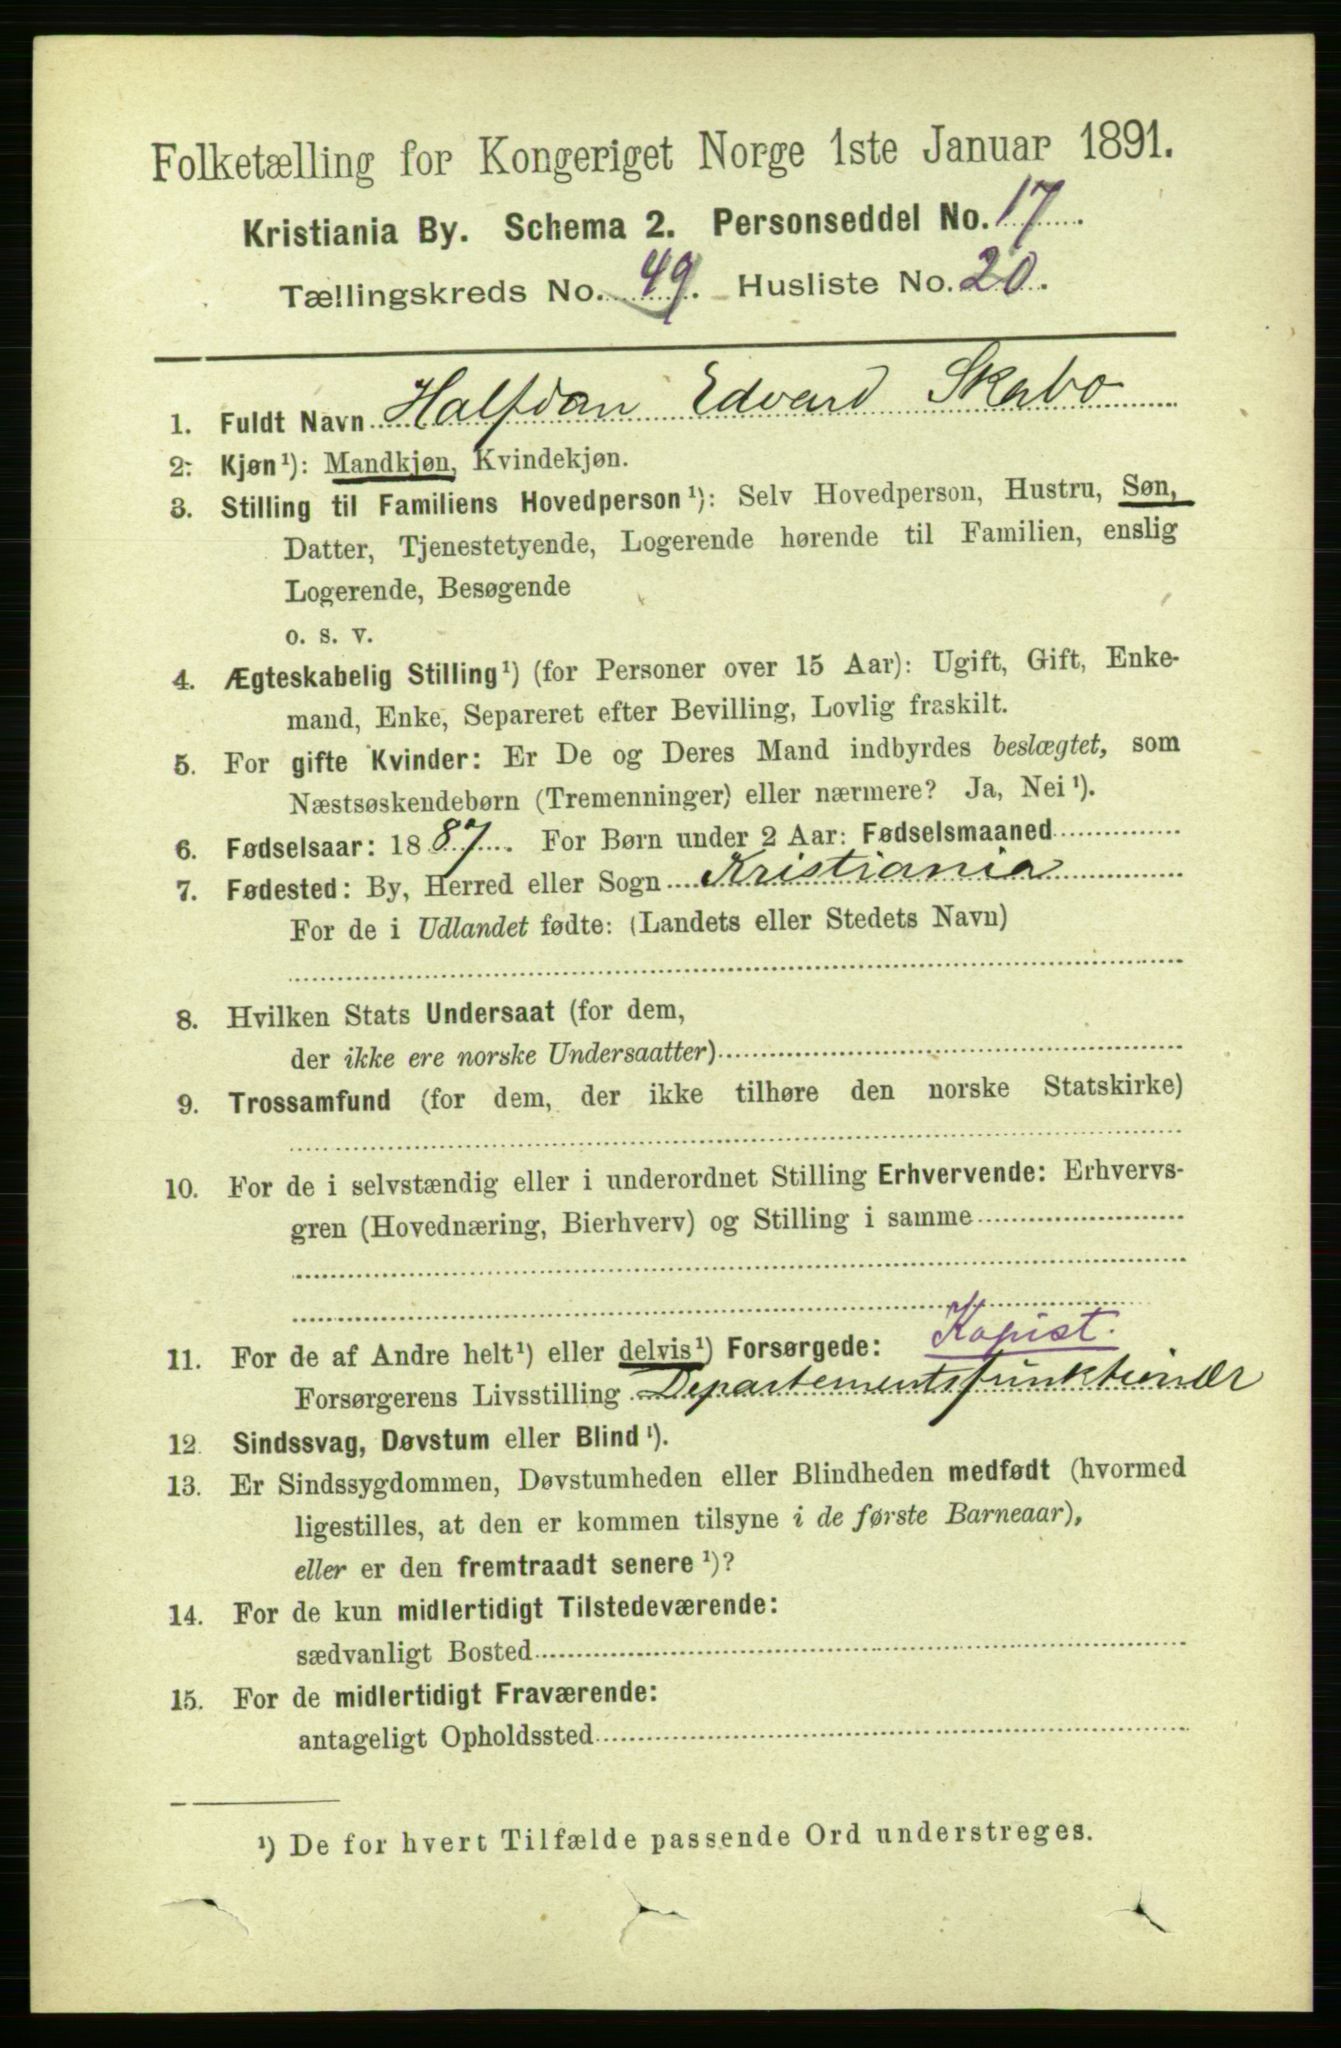 Folketælling for Kongeriget Norge 1ste Januar 1891.
Kristiania By. Schema 2. Personseddel No. 17.
Tællingskreds No. 49. Husliste No. 20.
1. Fuldt Navn Halfdan Edvard Skabo
2. Kjøn¹): Mandkjøn, Kvindekjøn.
3. Stilling til Familiens Hovedperson¹): Selv Hovedperson, Hustru, Søn,
Datter, Tjenestetyende, Logerende hørende til Familien, enslig
Logerende, Besøgende
o. s. v.
4. Ægteskabelig Stilling¹) (for Personer over 15 Aar): Ugift, Gift, Enke-
mand, Enke, Separeret efter Bevilling, Lovlig fraskilt.
5. For gifte Kvinder: Er De og Deres Mand indbyrdes beslægtet, som
Næstsøskendebørn (Tremenninger) eller nærmere? Ja, Nei¹).
6. Fødselsaar: 1887. For Børn under 2 Aar: Fødselsmaaned
7. Fødested: By, Herred eller Sogn Kristiania
For de i Udlandet fødte: (Landets eller Stedets Navn)
8. Hvilken Stats Undersaat (for dem,
der ikke ere norske Undersaatter)
9. Trossamfund (for dem, der ikke tilhøre den norske Statskirke)
10. For de i selvstændig eller i underordnet Stilling Erhvervende: Erhvervs-
gren (Hovednæring, Bierhverv) og Stilling i samme
11. For de af Andre helt¹) eller delvis¹) Forsørgede: Kopist.
Forsørgerens Livsstilling Departementsfunktionær
12. Sindssvag, Døvstum eller Blind¹).
13. Er Sindssygdommen, Døvstumheden eller Blindheden medfødt (hvormed
ligestilles, at den er kommen tilsyne i de første Barneaar),
eller er den fremtraadt senere¹)?
14. For de kun midlertidigt Tilstedeværende:
sædvanligt Bosted
15. For de midlertidigt Fraværende:
antageligt Opholdssted
¹) De for hvert Tilfælde passende Ord understreges.